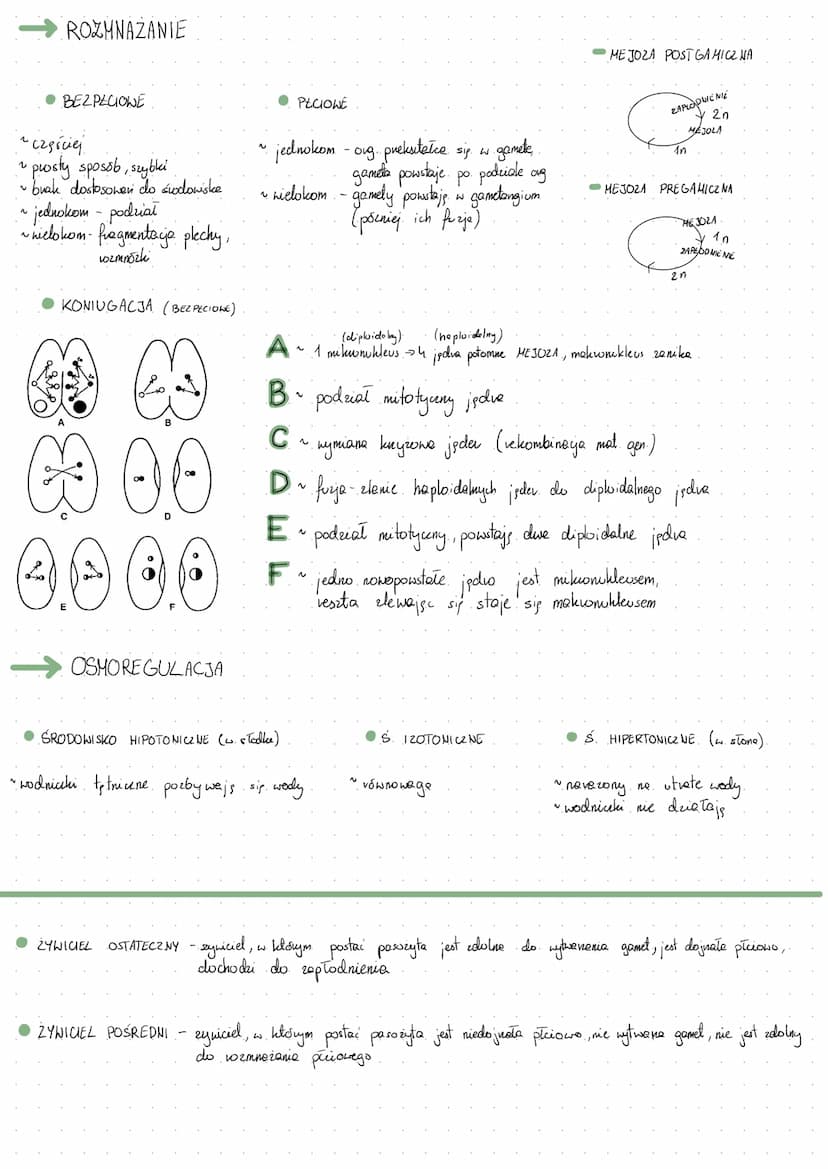 ROZMNAŻANIE
BEZPŁCIOWE
~ częściej
~ prosty sposób, szybki
~ brak dostosowań do środowiska
~ jednokom - podział
~ wielokom - fragmentacja plechy,
rozmnóżki
PŁCIOWE
~ jednokom - org. przekształca się w gametę,
gameta powstaje po podziale org
~ wielokom - gamety powstają w gametangium
(później ich fuzja)
MEJOZA POSTGAMICZNA
ZAPŁODNIENIE
2n
MEJOZA
1n
MEJOZA PREGAMICZNA
MEJOZA
1n
ZAPŁODNIENIE
2n
KONIUGACJA (BEZPŁCIOWE)
A
B
C
D
E
F
(diploidalny) (haploidalny)
A ~ 1 mikronukleus → 4 jądra potomne MEJOZA, makronukleus zanika
B ~ podział mitotyczny jądra
C ~ wymiana krzyżowa jąder (rekombinacja mat. gen.)
D ~ fuzja - zlanie haploidalnych jąder do diploidalnego jądra
E ~ podział mitotyczny, powstają dwa diploidalne jądra
F ~ jedno nowopowstałe jądro jest mikronukleusem,
reszta zlewając się staje się makronukleusem
OSMOREGULACJA
ŚRODOWISKO HIPOTONICZNE (w. słodka)
~ wodniczki tętniące pozbywają się wody
Ś. IZOTONICZNE
~ równowaga
Ś. HIPERTONICZNE (w. słona)
~ narażony na utratę wody
~ wodniczki nie działają
ŻYWICIEL OSTATECZNY - żywiciel, w którym postać pasożyta jest zdolna do wytwarzania gamet, jest dojrzała płciowo,
dochodzi do zapłodnienia
ŻYWICIEL POŚREDNI - żywiciel, w którym postać pasożyta jest niedojrzała płciowo, nie wytwarza gamet, nie jest zdolny
do rozmnażania płciowego